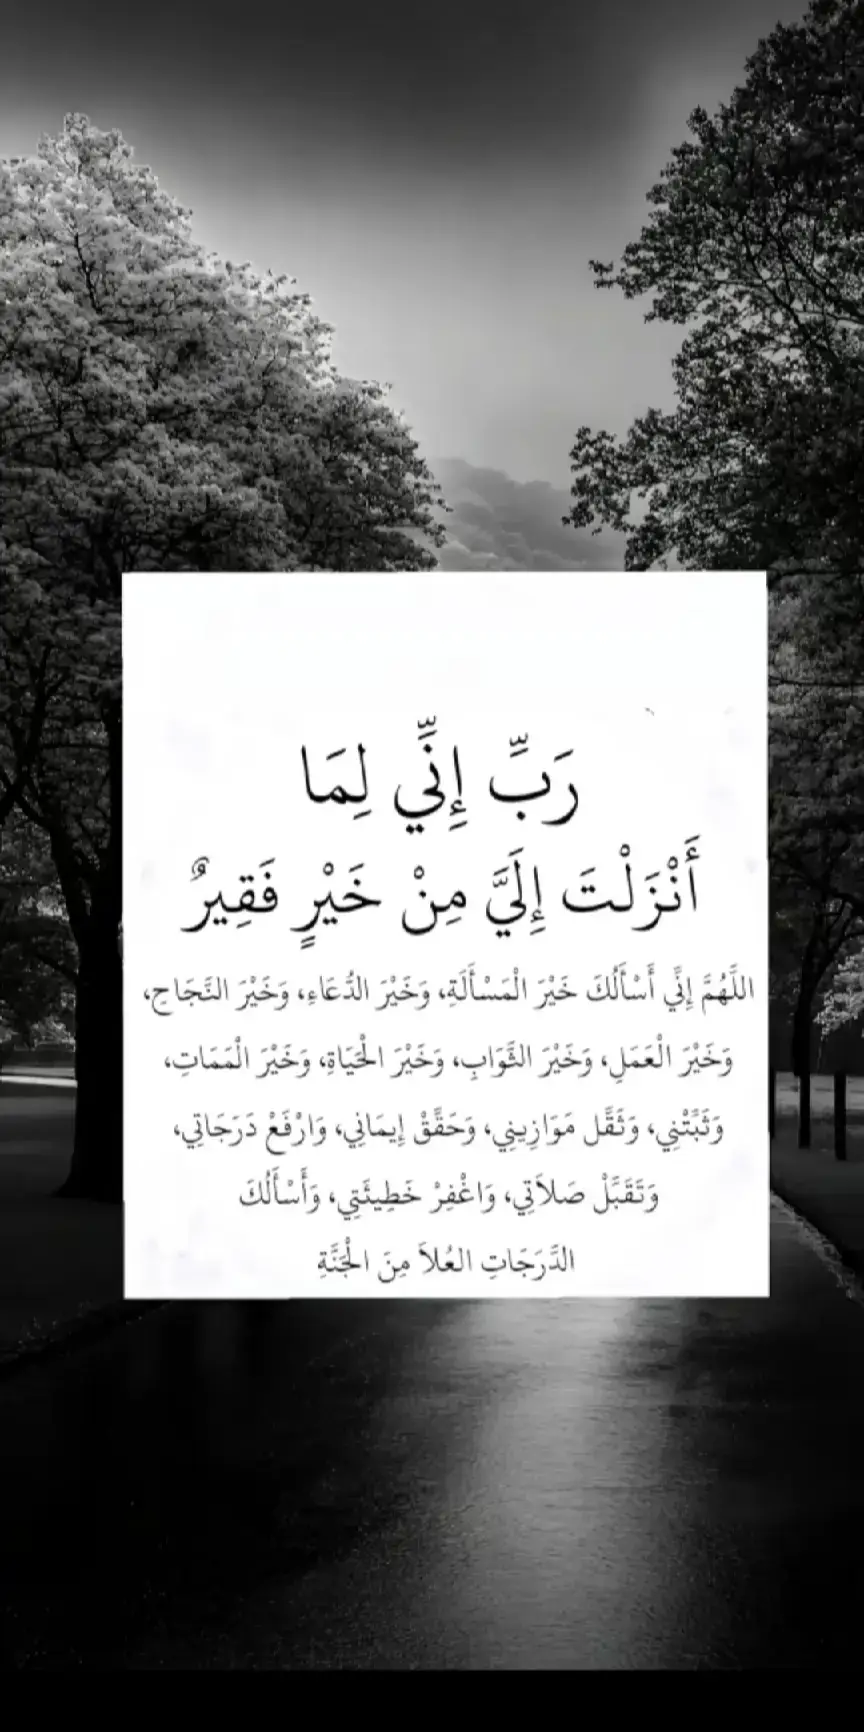 رَبِّ إِنِّي لِمَا
أَنْزَلْتَ إِلَيَّ مِنْ خَيْرٍ فَقِيرٌ
اللَّهُمَّ إِنِّي أَسْأَلُكَ خَيْرَ الْمَسْأَلَةِ، وَخَيْرَ الدُّعَاءِ، وَخَيْرَ النَّجَاحِ،
وَخَيْرَ الْعَمَلِ، وَخَيْرَ الثَّوَابِ، وَخَيْرَ الْحَيَاةِ، وَخَيْرَ الْمَمَاتِ،
وَثَبِّتْنِي، وَثَقِّل مَوَازِينِي، وَحَقِّقْ إِيمَانِي، وَارْفَعْ دَرَجَاتِي،
وَتَقَبَّلْ صَلاَتِي، وَاغْفِرْ خَطِيئَتِي، وَأَسْأَلُكَ
الدَّرَجَاتِ العُلاَ مِنَ الْجَنَّةِ